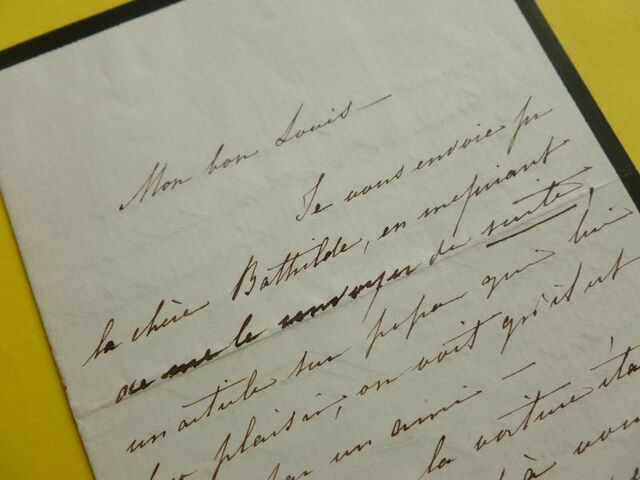 Mon bon Louis —
Je vous envoie pr
la chère Bathilde, en me priant
de me le renvoyer de suite,
un article sur papa qui lui
plaisir, on voit qu'il est
par un ami —
la voiture éta
à vou